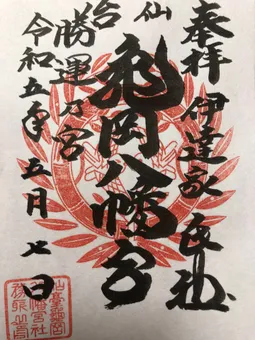 奉拝 伊達家氏神
仙台
亀岡八幡宮
勝運乃宮
令和五年五月七日